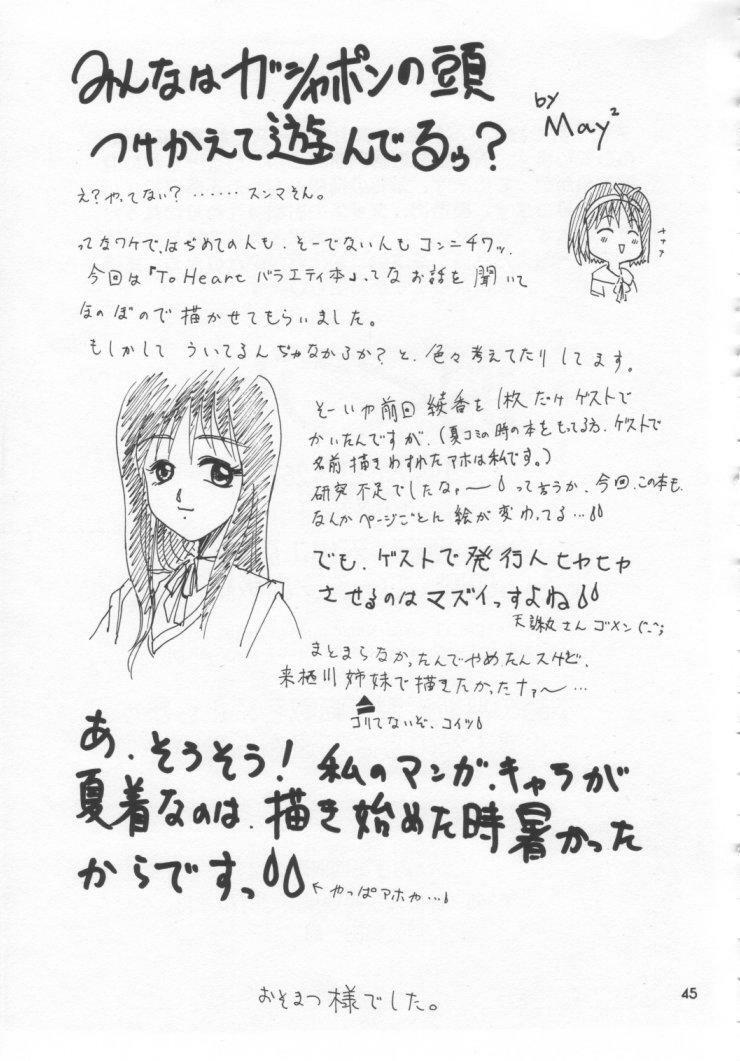 みんなはガシャポンの頭
つけかえて遊んでるぅ?
by
May²
え?やってない?……スンマそん。
ってなワケで、はぢめての人も、そーでない人もコンニチワッ。
今回は『To Heart バラエティ本』ってなお話を聞いて
ほのぼので描かせてもらいました。
もしかして ういてるんぢゃなかろか?と、色々考えてたりしてます。
そーいや前回 綾香を1枚だけ ゲストで
かいたんですが、(夏コミの時の本をもってる方、ゲストで
名前描きわすれたアホは私です。)
研究不足でしたなァ〜 って言うか、今回、この本も、
なんかページごとん 絵が変わってる…
でも、ゲストで発行人ヒヤヒヤ
させるのはマズイっすよね
天誅丸さん ゴメン(^-^;
まとまらなかったんでやめたんスけど、
来栖川姉妹で描きたかったナァ〜…
コリてないぞ、コイツ
あ、そうそう! 私のマンガ、キャラが
夏着なのは、描き始めた時暑かった
からですっ
←やっぱアホや…
おそまつ様でした。
45